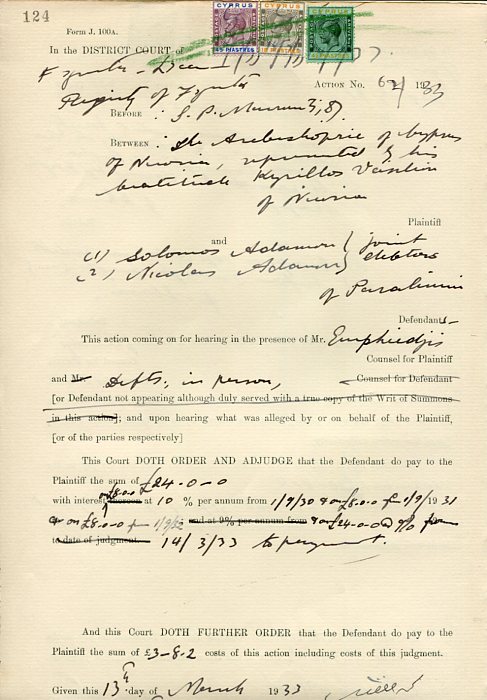 124
Form J. 100A.
CYPRUS CYPRUS CYPRUS
45 PIASTRES 18 PIASTRES
In the DISTRICT COURT of
Registry of
ACTION No. 62/1933
BEFORE : S. P.
BETWEEN : The Archbishopric of Cyprus
of Nicosia, represented by his
beatitude Kyrillos Vassiliou
of Nicosia
Plaintiff
and
(1) Solomos Adamou } joint
(2) Nicolas Adamou } debtors
of Paralimni
Defendants-
This action coming on for hearing in the presence of Mr. Emphiedjis
Counsel for Plaintiff
and Mr. Defts. in person, Counsel for Defendant
[or Defendant not appearing although duly served with a true copy of the Writ of Summons
in this action]; and upon hearing what was alleged by or on behalf of the Plaintiff,
[or of the parties respectively]
This Court DOTH ORDER AND ADJUDGE that the Defendant do pay to the
Plaintiff the sum of £24-0-0
on £8.0.0
with interest thereon at 10 % per annum from 1/9/30 on £8.0.0 from 1/9/1931
on £8-0-0 from and at 9% per annum from on £24-0-0
to date of judgment. 14/3/33 to payment.
And this Court DOTH FURTHER ORDER that the Defendant do pay to the
Plaintiff the sum of £3-8-2 costs of this action including costs of this judgment.
Given this 13th day of March 1933